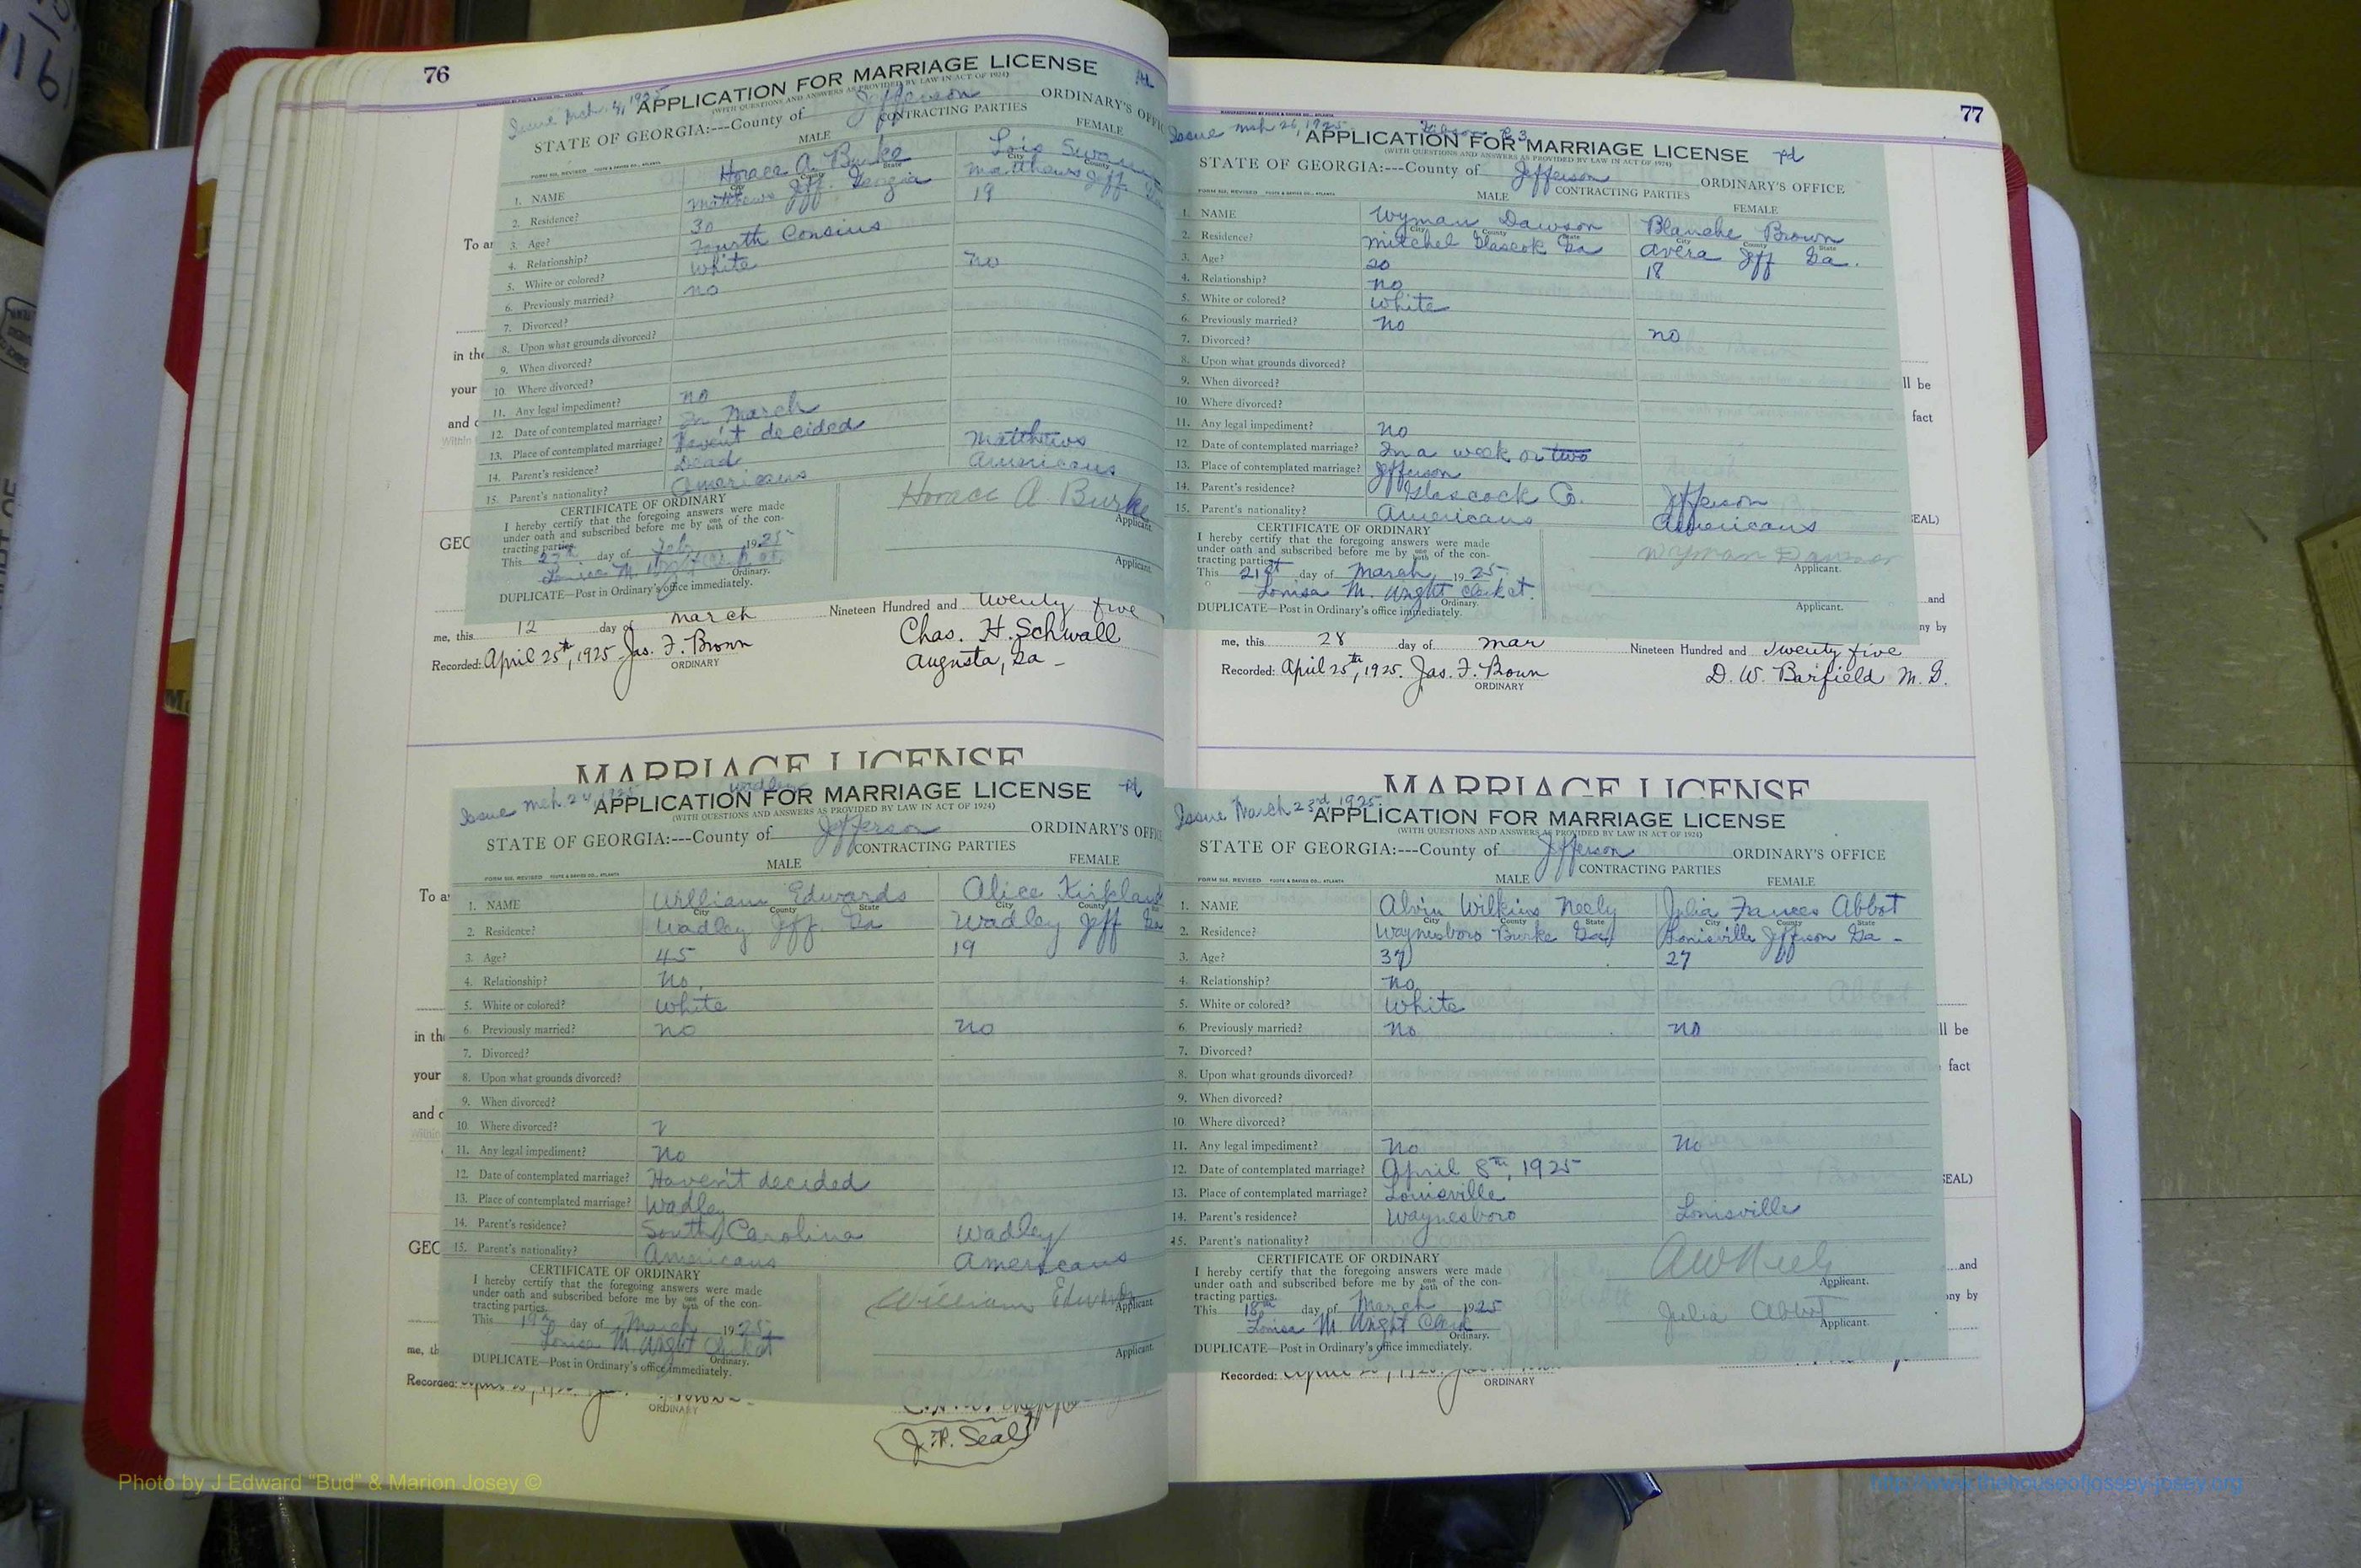 76
Issue Mch. 4, 1925
APPLICATION FOR MARRIAGE LICENSE
(WITH QUESTIONS AND ANSWERS AS PROVIDED BY LAW IN ACT OF 1924)
STATE OF GEORGIA:---County of Jefferson ORDINARY'S OFFI
CONTRACTING PARTIES
MALE FEMALE
1. NAME Horace A. Burke Lois
City County State City County
2. Residence? Matthews Jeff. Georgia Matthews Jeff
3. Age? 30 19
4. Relationship? Fourth Consins
5. White or colored? White
6. Previously married? no no
7. Divorced?
8. Upon what grounds divorced?
9. When divorced?
10. Where divorced?
11. Any legal impediment? no
12. Date of contemplated marriage? In March
13. Place of contemplated marriage? Haven't decided
14. Parent's residence? Dead Matthews
15. Parent's nationality? Americans Americans
CERTIFICATE OF ORDINARY
I hereby certify that the foregoing answers were made
under oath and subscribed before me by one both of the con-
tracting parties.
This 27th day of Feb 1925
Louisa M. Wright
Ordinary.
DUPLICATE—Post in Ordinary's office immediately.
Horace A Burke
Applicant.
Applicant.
To a
in the
your
and c
Within
GEO
me, this 12 day of march Nineteen Hundred and Twenty five
Recorded: April 25th, 1925 Jas. F. Brown
ORDINARY
Chas. H. Schwall
Augusta, Ga -
MARRIAGE LICENSE
Issue Mch. 1925 Wadley
APPLICATION FOR MARRIAGE LICENSE Pd
(WITH QUESTIONS AND ANSWERS AS PROVIDED BY LAW IN ACT OF 1924)
STATE OF GEORGIA:---County of Jefferson ORDINARY'S OFFI
CONTRACTING PARTIES
MALE FEMALE
FORM SIX. REVISED FOOTE & DAVIES CO., ATLANTA
1. NAME William Edwards Alice Kirkland
City County State City County
2. Residence? Wadley Jeff. Ga Wadley Jeff Ga
3. Age? 45 19
4. Relationship? No.
5. White or colored? White
6. Previously married? no no
7. Divorced?
8. Upon what grounds divorced?
9. When divorced?
10. Where divorced?
11. Any legal impediment? No
12. Date of contemplated marriage? Haven't decided
13. Place of contemplated marriage? Wadley
14. Parent's residence? South Carolina Wadley
15. Parent's nationality? Americans Americans
CERTIFICATE OF ORDINARY
I hereby certify that the foregoing answers were made
under oath and subscribed before me by one both of the con-
tracting parties.
This 19th day of March 1925
Louisa M. Wright Clerk ct
Ordinary.
DUPLICATE—Post in Ordinary's office immediately.
William Edwards
Applicant.
Applicant.
To a
in th
your
and c
Within
GEO
me, th
Recorded:
ORDINARY
J.P. Seal
77
Issue Mch 26, 1925 Gibson R 3
APPLICATION FOR MARRIAGE LICENSE Pd
(WITH QUESTIONS AND ANSWERS AS PROVIDED BY LAW IN ACT OF 1924)
STATE OF GEORGIA:---County of Jefferson ORDINARY'S OFFICE
CONTRACTING PARTIES
MALE FEMALE
FORM SIX. REVISED FOOTE & DAVIES CO., ATLANTA
1. NAME Wyman Dawson Blanche Brown
City County State City County State
2. Residence? Mitchel Glascok Ga Avera Jeff Ga.
3. Age? 20 18
4. Relationship? no
5. White or colored? White
6. Previously married? no no
7. Divorced?
8. Upon what grounds divorced?
9. When divorced?
10. Where divorced?
11. Any legal impediment? no
12. Date of contemplated marriage? In a week or two
13. Place of contemplated marriage? Jefferson
14. Parent's residence? Glascock Co. Jefferson
15. Parent's nationality? Americans Americans
CERTIFICATE OF ORDINARY
I hereby certify that the foregoing answers were made
under oath and subscribed before me by one both of the con-
tracting parties.
This 21st day of March 1925
Louisa M. Wright Clerk ct.
Ordinary.
DUPLICATE—Post in Ordinary's office immediately.
Wyman Dawson
Applicant.
Applicant.
ll be
fact
EAL)
and
ny by
me, this 28 day of mar Nineteen Hundred and Twenty five
Recorded: April 25th, 1925. Jas. F. Brown
ORDINARY
D. W. Barfield M. G.
MARRIAGE LICENSE
Issue March 23rd, 1925
APPLICATION FOR MARRIAGE LICENSE
(WITH QUESTIONS AND ANSWERS AS PROVIDED BY LAW IN ACT OF 1924)
STATE OF GEORGIA:---County of Jefferson ORDINARY'S OFFICE
CONTRACTING PARTIES
MALE FEMALE
FORM SIX. REVISED FOOTE & DAVIES CO., ATLANTA
1. NAME Alvin Wilkins Neely Julia Frances Abbot
City County State City County State
2. Residence? Waynesboro Burke Ga Louisville Jefferson Ga -
3. Age? 37 27
4. Relationship? no
5. White or colored? White
6. Previously married? no no
7. Divorced?
8. Upon what grounds divorced?
9. When divorced?
10. Where divorced?
11. Any legal impediment? No No
12. Date of contemplated marriage? April 8th, 1925
13. Place of contemplated marriage? Louisville
14. Parent's residence? Waynesboro Louisville
15. Parent's nationality?
CERTIFICATE OF ORDINARY
I hereby certify that the foregoing answers were made
under oath and subscribed before me by one both of the con-
tracting parties.
This 18th day of March 1925
Louisa M. Wright Clerk
Ordinary.
DUPLICATE—Post in Ordinary's office immediately.
AW Neely
Applicant.
Julia Abbot
Applicant.
ll be
fact
EAL)
and
ony by
Recorded:
ORDINARY
Photo by J Edward "Bud" & Marion Josey ©
http://www.thehouseofjossey-josey.org